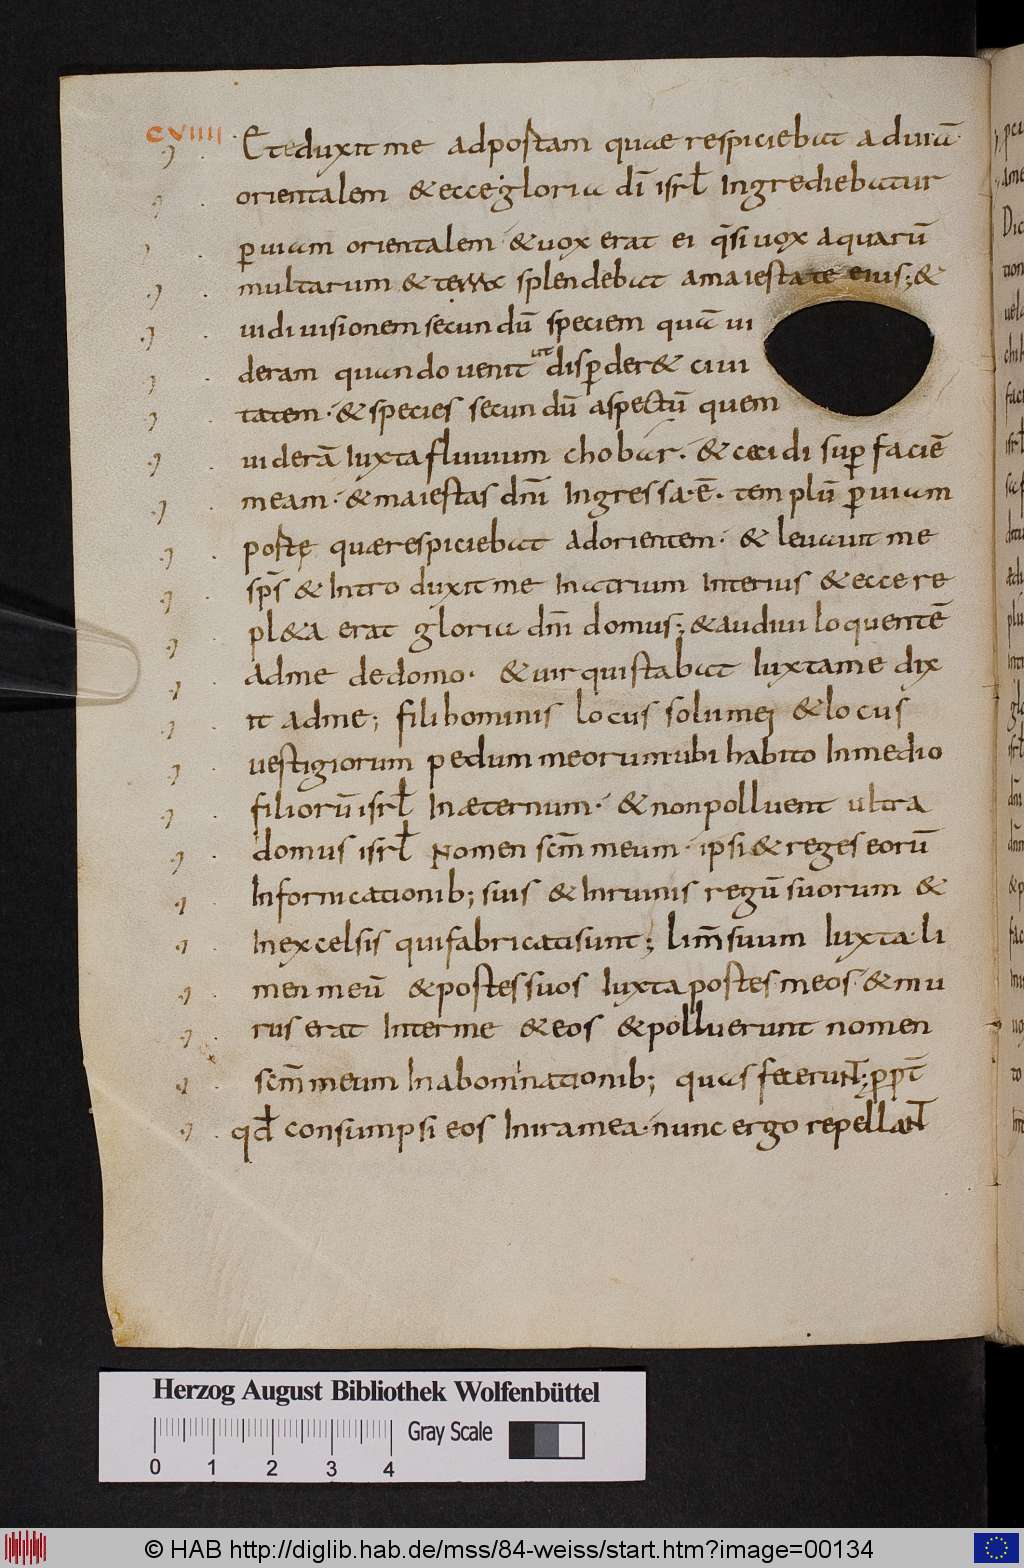 CVIIII
Et eduxit me ad postam quae respiciebat ad uiā
orientalem & ecce gloria dī isrł Ingrediebatur
ꝑ uiam orientalem & uox erat ei q̄si uox aquarū
multarum & terra splendebat a maiestate eius; &
uidi uisionem secundū speciem quā ui
deram quando uenit ut disꝑder& ciui
tatem · & species secundū aspectū quem
uiderā Iuxta fluuium chobar · & cecidi suꝑ faciē
meam · & maiestas dn̄i Ingressa · ē · templū ꝑ uiam
portę quæ respiciebat ad orientem · & leuauit me
sp̄s & Introduxit me In atrium Interius & ecce re
pl&a erat gloria dn̄i domus; & audiui loquentē
ad me de domo · & uir qui stabat Iuxta me dix
it ad me; fili hominis locus solii mei & locus
uestigiorum pedum meorum ubi habito In medio
filiorū isrł In æternum · & non polluent ultra
domus isrł Nomen scm̄ meum · ipsi & reges eorū
In fornicationib; suis & In ruinis regū suorum &
In excelsis qui fabricati sunt; lim̄ suum Iuxta li
men meū & postes suos Iuxta postes meos · & mu
rus erat Inter me & eos & polluerunt nomen
scm̄ meum In abominationib; quas fecerunt; ꝓpt̄
qđ consumpsi eos In ira mea · nunc ergo repellant
Herzog August Bibliothek Wolfenbüttel
Gray Scale
0 1 2 3 4
© HAB http://diglib.hab.de/mss/84-weiss/start.htm?image=00134